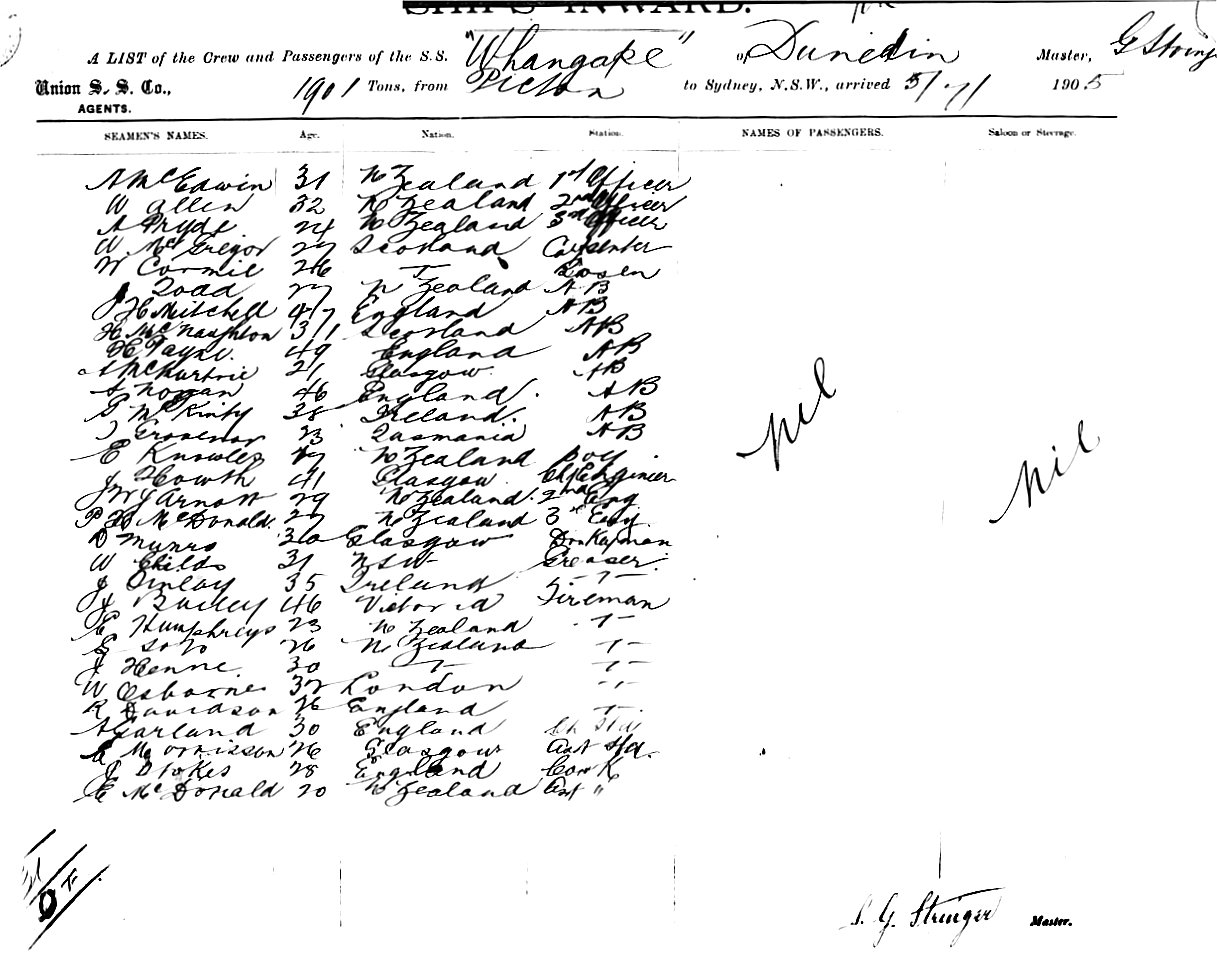 SHIPS INWARD.
A LIST of the Crew and Passengers of the S.S. "Whangape" of Dunedin Master, G String
Union S. S. Co., 1901 Tons, from Picton to Sydney, N.S.W., arrived 5/7/ 1905
AGENTS.
SEAMEN'S NAMES. Age. Nation. Station. NAMES OF PASSENGERS. Saloon or Steerage.
A McEdwin 31 N Zealand 1st Officer
W Allen 32 N Zealand 2nd Officer
A Pryde 24 N Zealand 3rd Officer
W. McGregor 27 Scotland Carpenter
W Cormie 26 Bosen
J Todd 27 N Zealand AB
J H Mitchell 47 England AB
H McNaughton 31 Scotland AB
H Payne. 49 England AB
A McKurtrie 21 Glasgow. AB
46 England. AB
G McKinty 38 Ireland. AB
T Grovenor 23 Tasmania AB
E Knowles 17 N Zealand Boy
J Howth 41 Glasgow Chf Enginier
J W J Arnott 29 N Zealand. 2nd Eng
P H McDonald. 27 N Zealand 3rd Eng.
D Munro 30 Glasgow Donkeyman
W Childs 31 NSW Greaser.
J Finlay 35 Ireland
J Bailey 46 Victoria Fireman
E Humphreys 23 N Zealand
E Soto 26 N Zealand
J Henne. 30
W Osborne 32 London
R Davidson 26 England
A Garland 30 England Ch Std
G Morrisson 26 Glasgow Asst Std.
J Stokes 28 England Cook
E McDonald 20 N Zealand Ast "
Nil
Nil
S. G. Stringer Master.